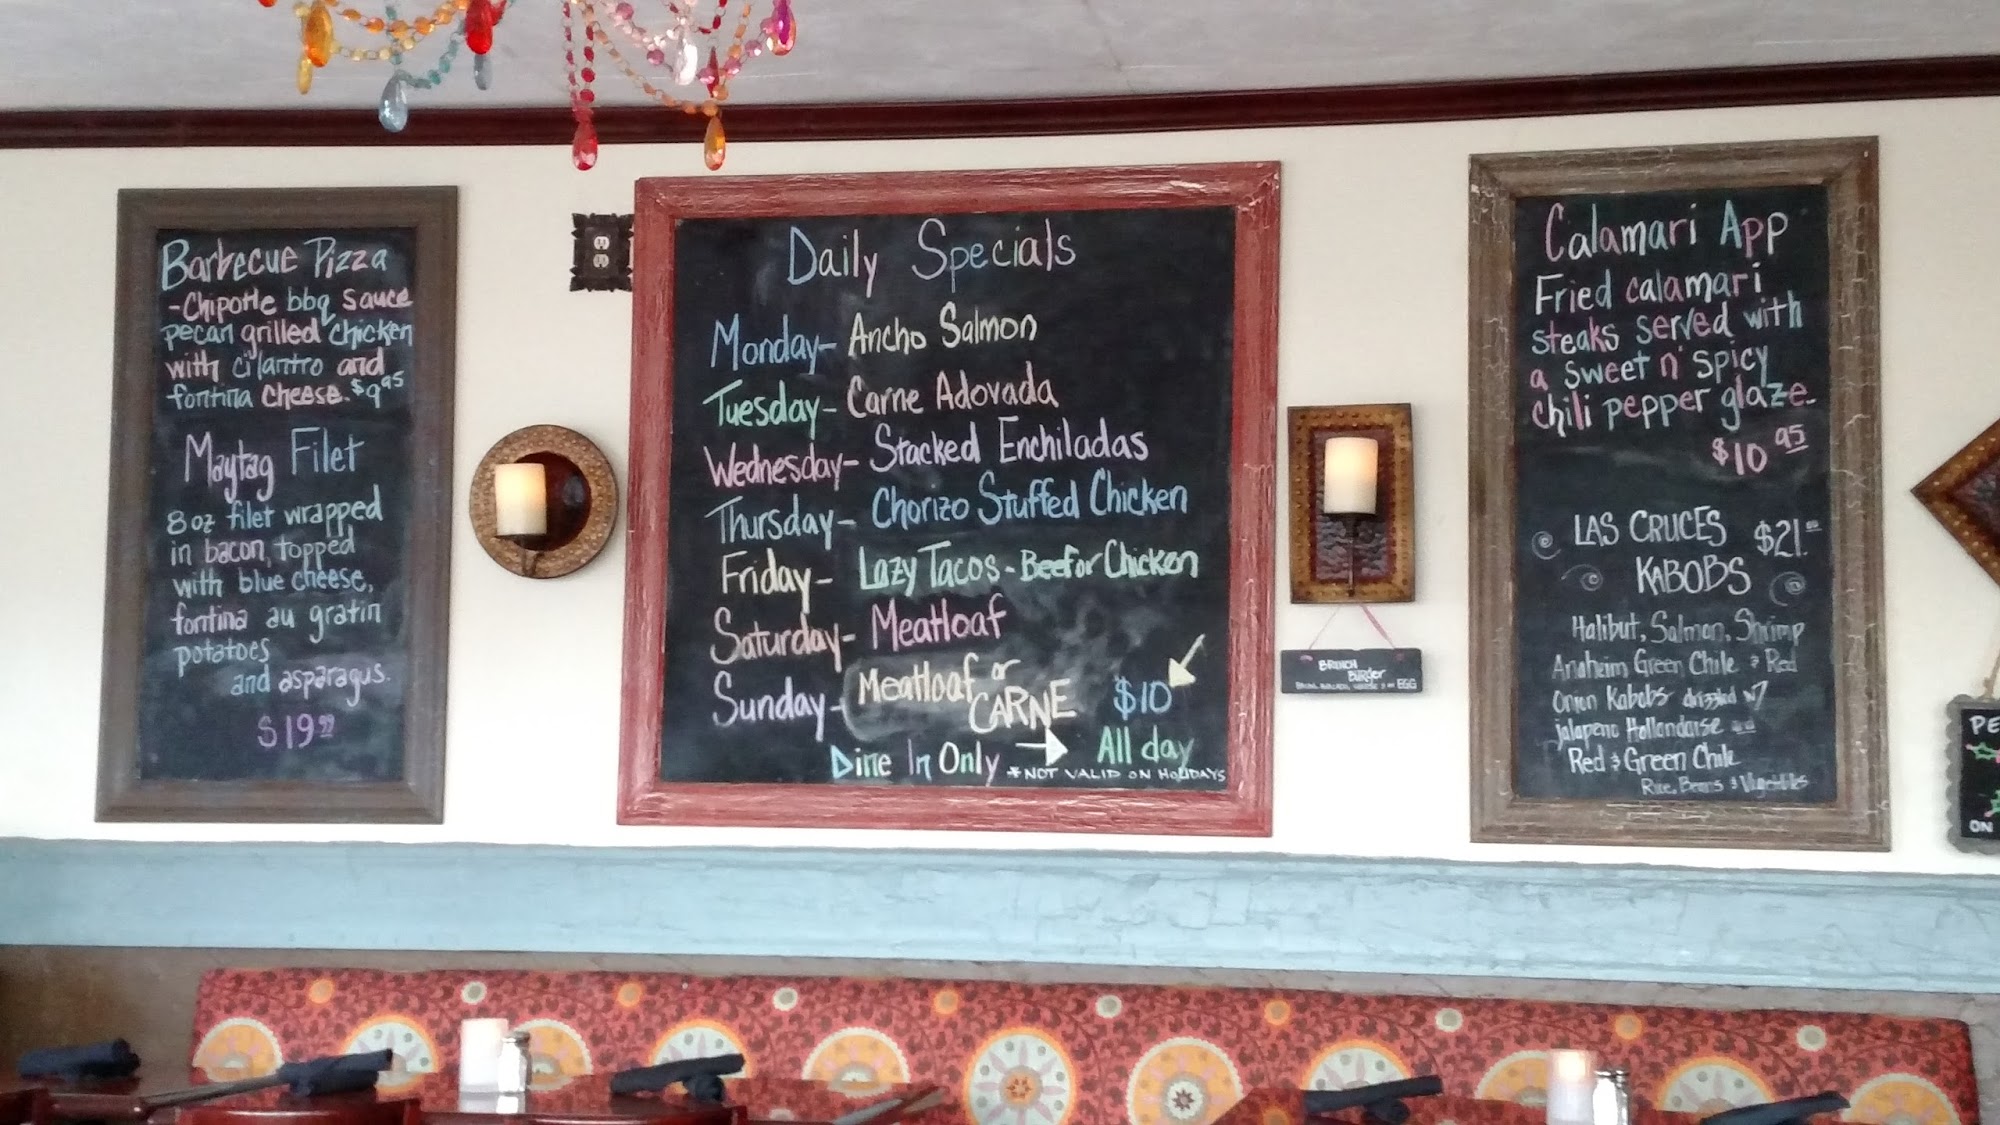 Barbecue Pizza
-Chipotle bbq sauce
pecan grilled chicken
with cilantro and
fontina cheese. $9.95
Maytag Filet
8 oz filet wrapped
in bacon, topped
with blue cheese,
fontina au gratin
potatoes
and asparagus.
$19.99
33
Daily Specials
Monday- Ancho Salmon
Tuesday- Carne Adovada
Wednesday- Stacked Enchiladas
Thursday- Chorizo Stuffed Chicken
Friday- Lazy Tacos - Beef or Chicken
Saturday- Meatloaf
Sunday- Meatloaf or CARNE $10
Dine In Only → All day
*NOT VALID ON HOLIDAYS
BRUNCH
BURGER
EGG
Calamari App
Fried calamari
steaks served with
a sweet n' spicy
chili pepper glaze.
$10.95
LAS CRUCES $21.00
KABOBS
Halibut, Salmon, Shrimp
Anaheim Green Chile & Red
Onion Kabobs drizzled w/
jalapeno Hollandaise and
Red & Green Chile
Rice, Beans & Vegetables
PE
ON